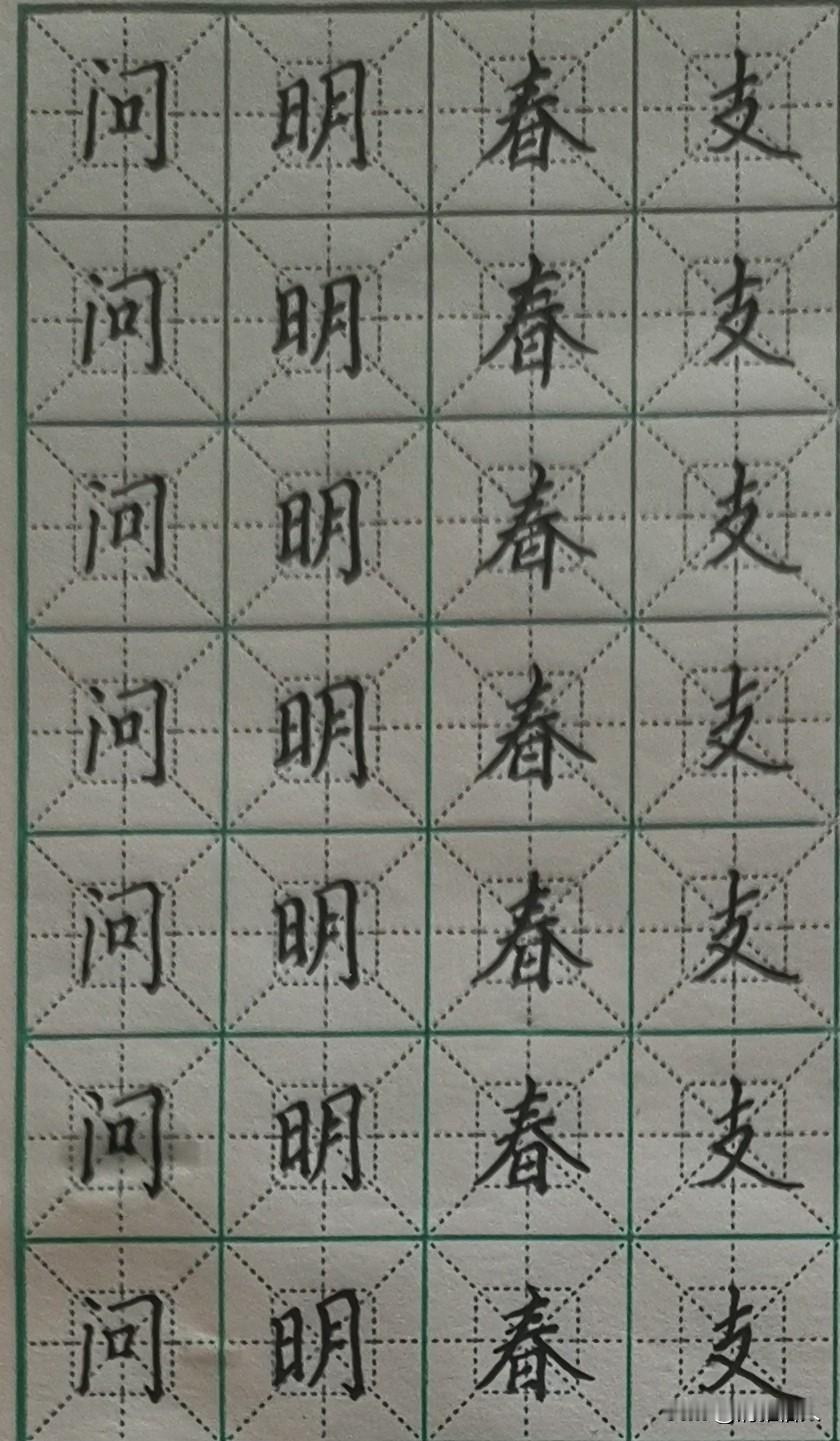 问明春支
问明春支
问明春支
问明春支
问明春支
问明春支
问明春支